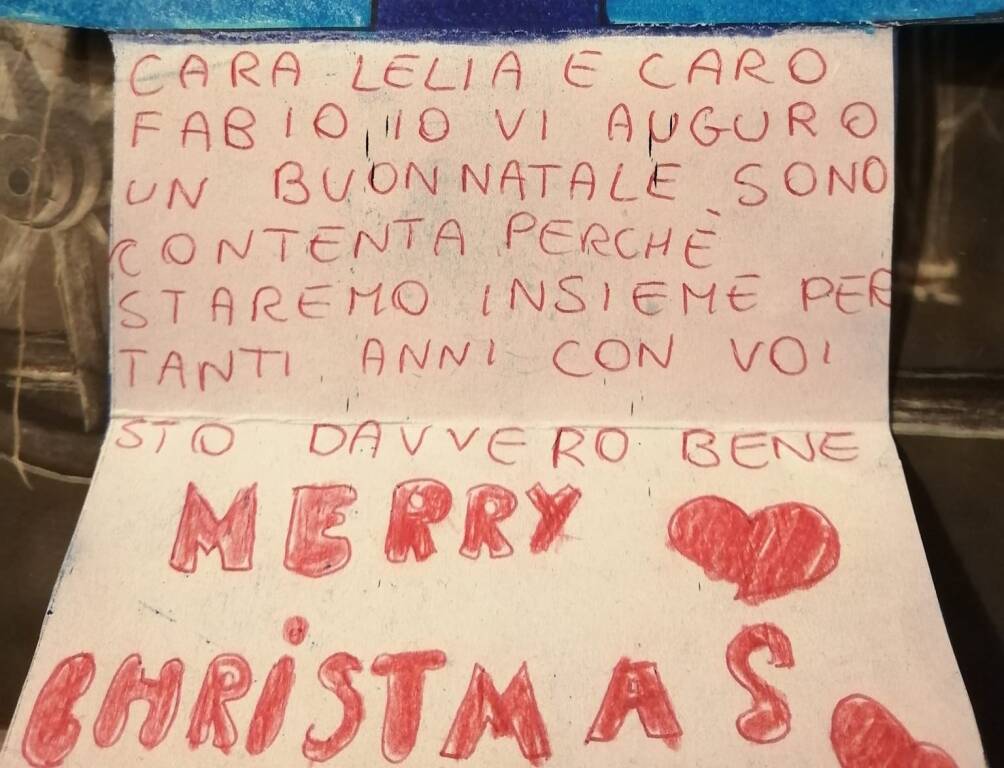 CARA LELIA E CARO
FABIO IO VI AUGURO
UN BUON NATALE SONO
CONTENTA PERCHÈ
STAREMO INSIEME PER
TANTI ANNI CON VOI
STO DAVVERO BENE
MERRY
CHRiSTMAS